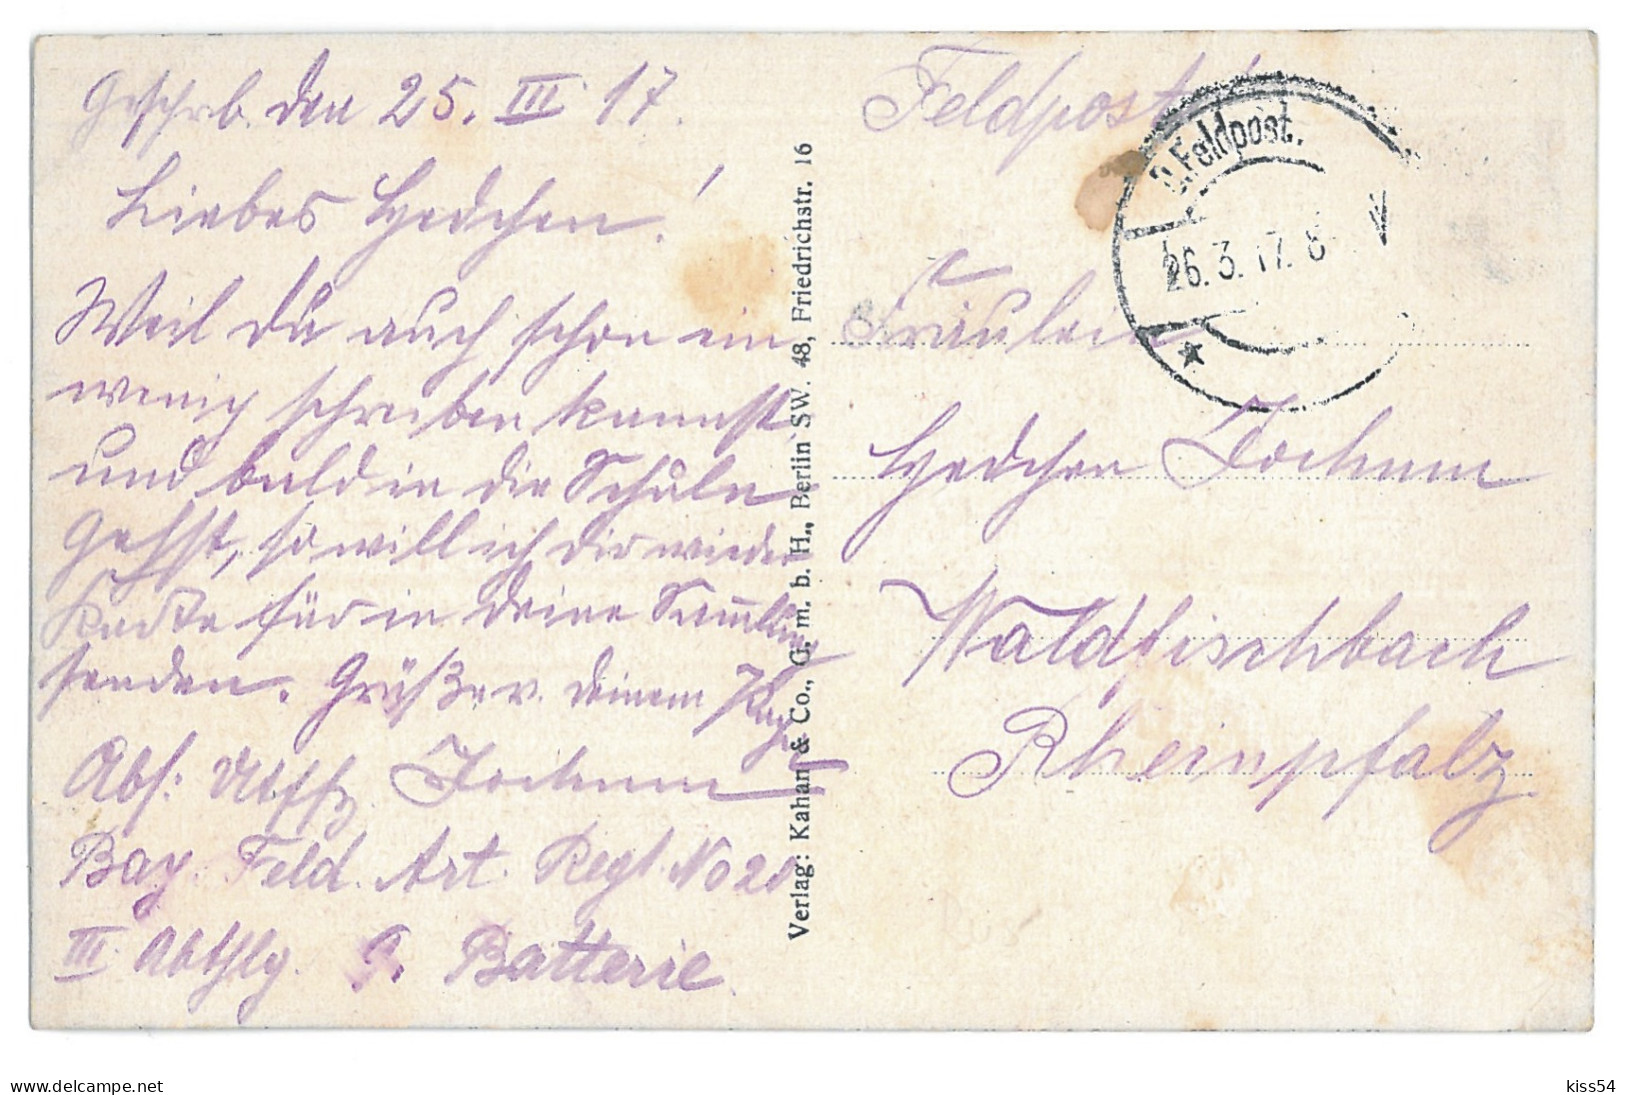 Geschrb. den 25. III. 17.
Liebes Hedchen!
Weil du auch schon ein
wenig schreiben kannst,
und bald in die Schule
gehst, so will ich dir wieder
Karte für in deine Sammlung
senden. Grüße v. deinem
Abs: Utffz. Jochum
Bay. Feld. Art. Regt. No 20
III. Abtlg. 9. Batterie.
Verlag: Kahan & Co., G. m. b. H., Berlin SW. 48, Friedrichstr. 16
Feldpost!
D. Feldpost.
26.3.17. 8
Fräulein
Hedchen Jochum
Waldfischbach
Rheinpfalz
delcampe.net
kiss54